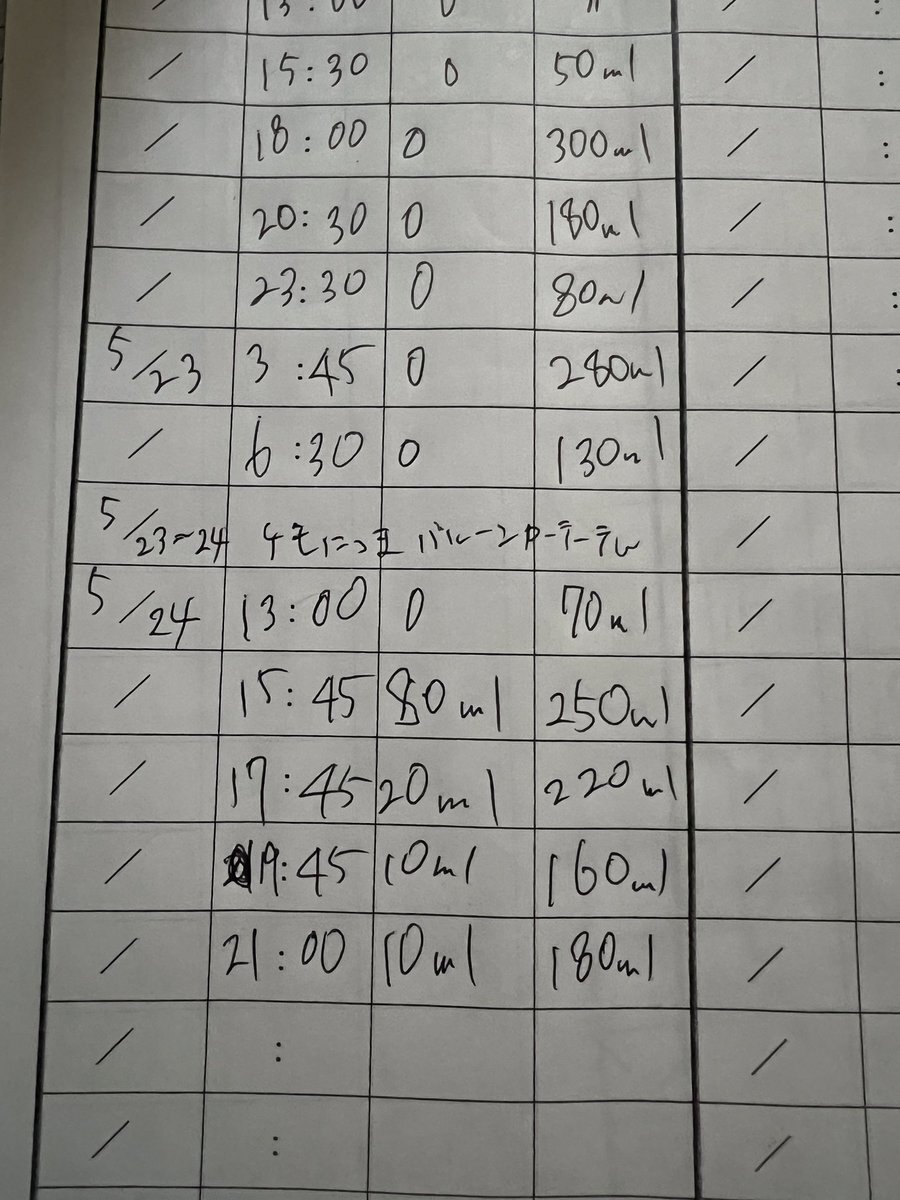 15:30 0 50ml /
/ 18:00 0 300ml /
/ 20:30 0 180ml /
/ 23:30 0 80ml /
5/23 3:45 0 280ml /
/ 6:30 0 130ml /
5/23~24 ケモにつき バルーンカテーテル /
5/24 13:00 0 70ml /
/ 15:45 80ml 250ml /
/ 17:45 20ml 220ml /
/ 19:45 10ml 160ml /
/ 21:00 10ml 180ml /
/ : /
/ : /